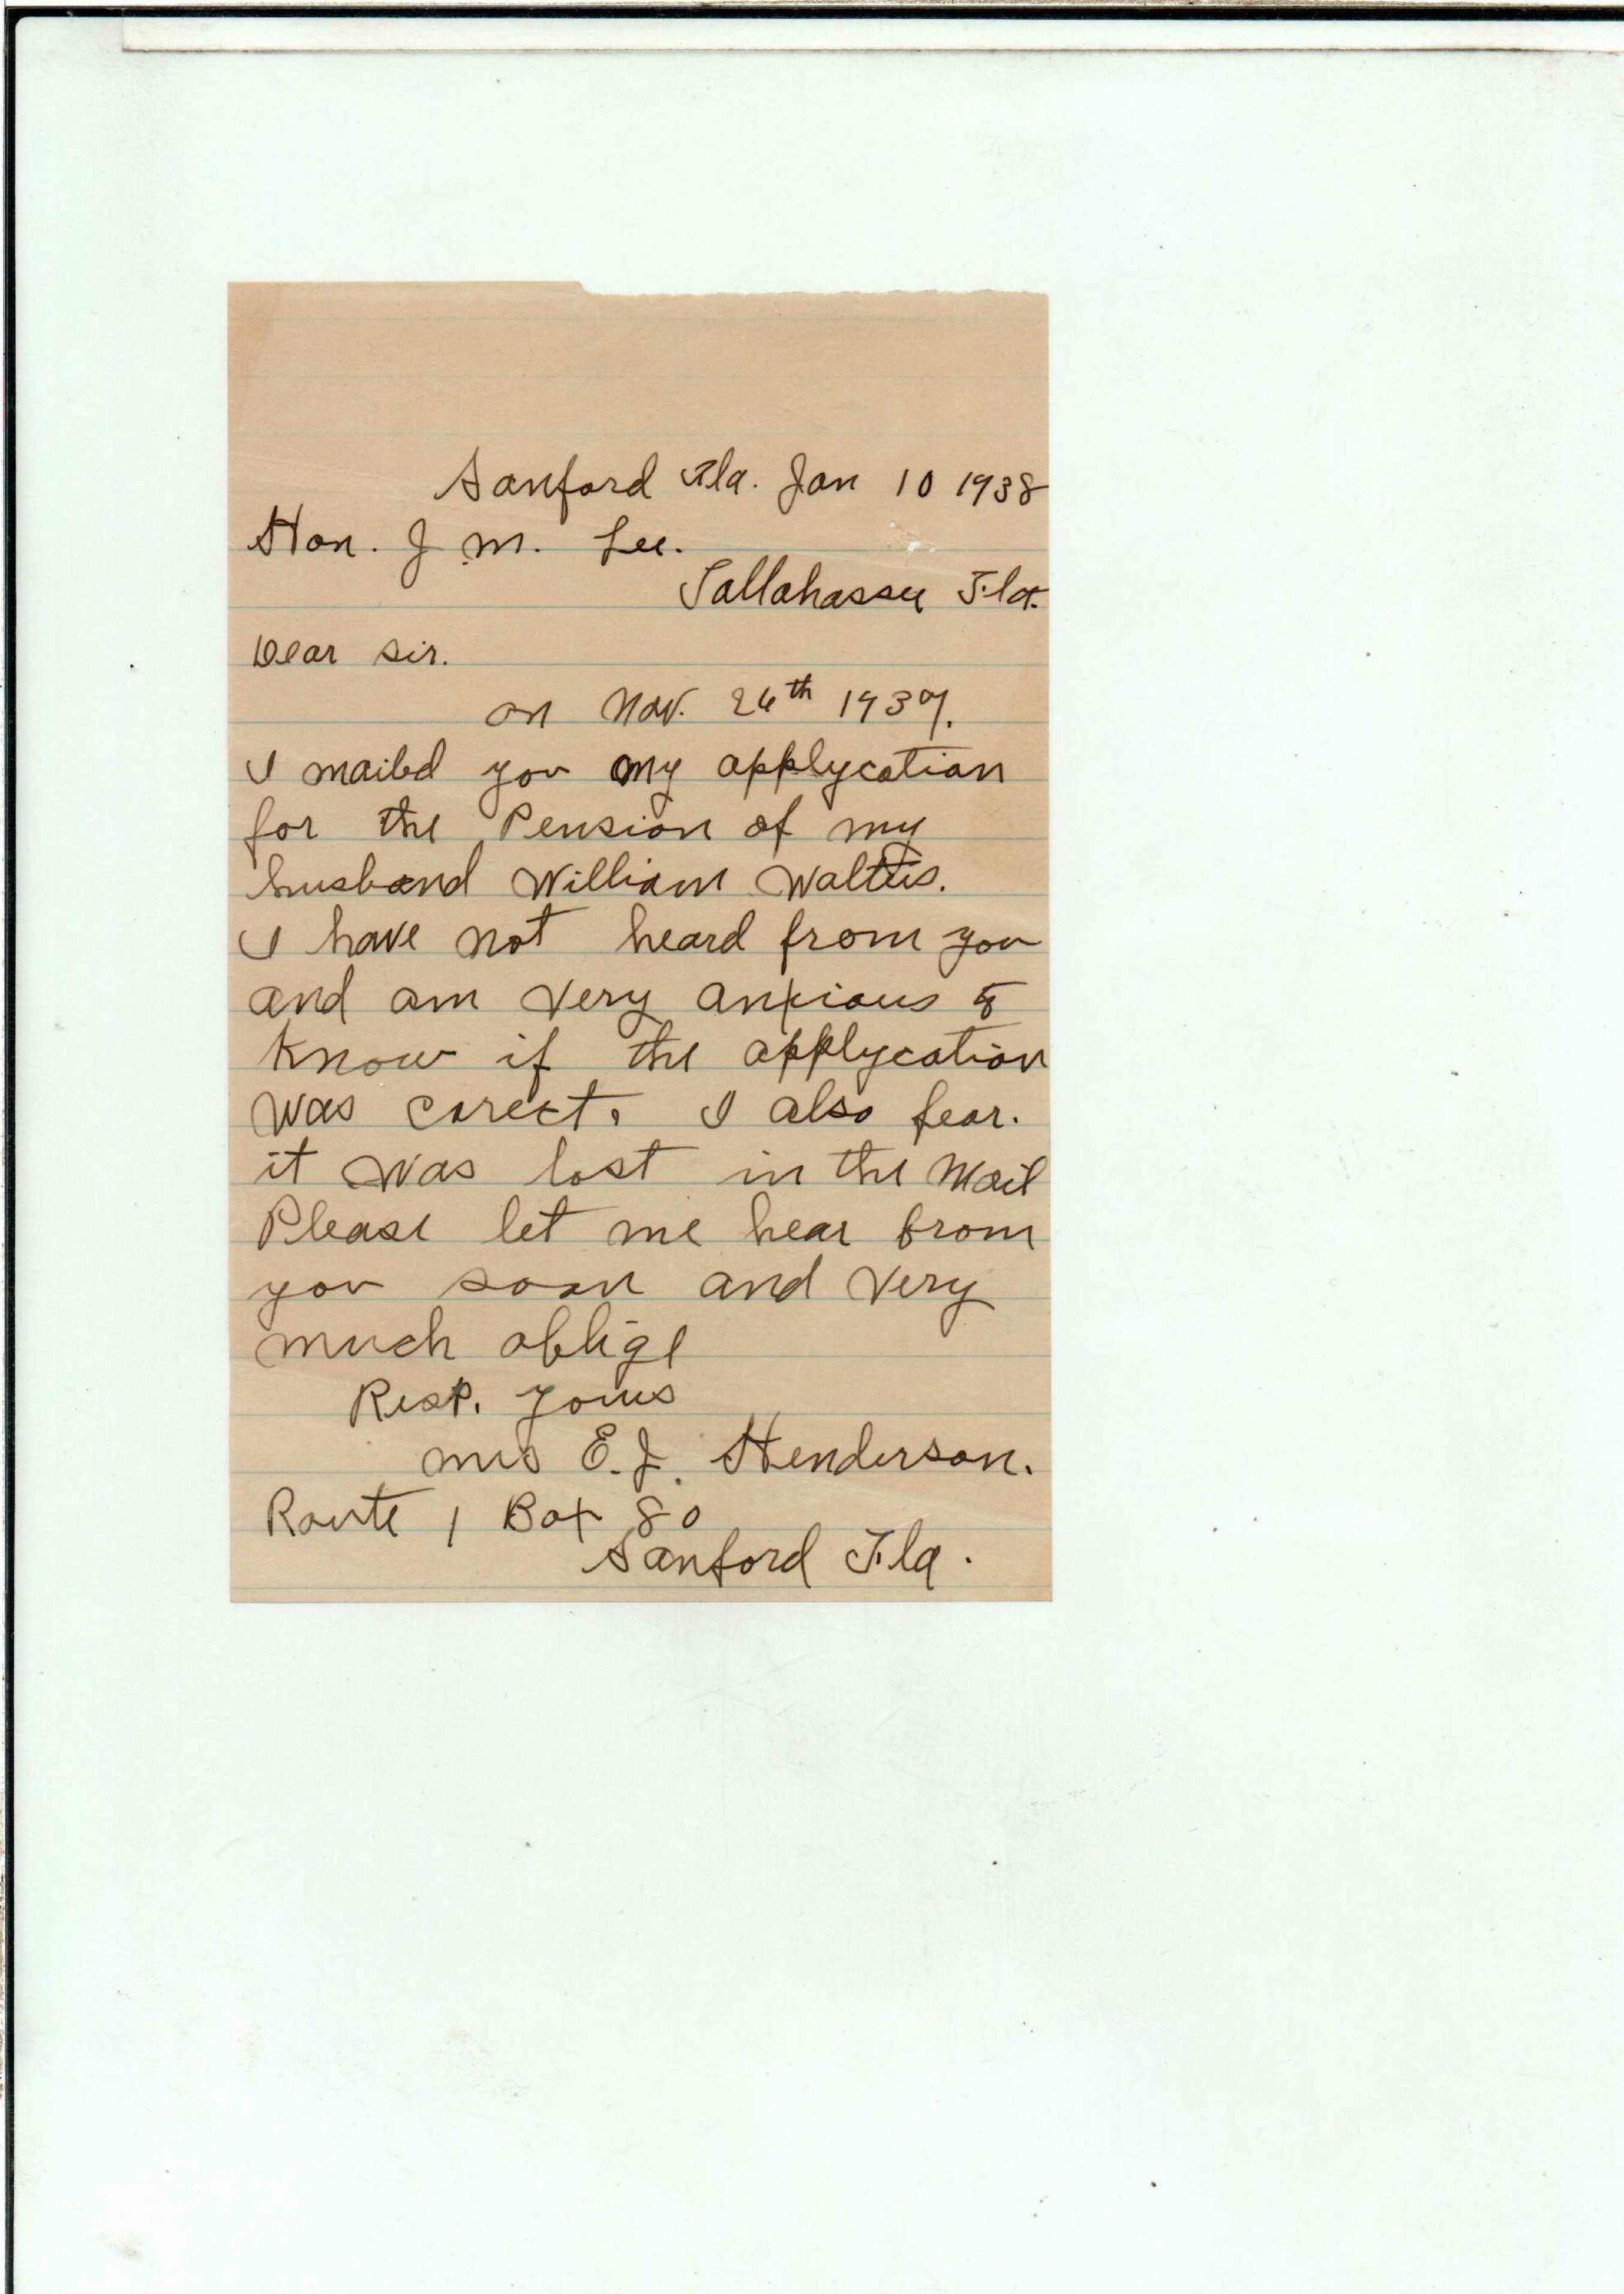 Sanford Fla. Jan 10 1938
Hon. J. M. Lee.
Tallahassee Fla.
Dear sir.
on Nov. 26th 1937.
I mailed you my applycation
for the Pension of my
husband William Walters.
I have not heard from you
and am very anxious to
know if the applycation
was corect. I also fear.
it was lost in the mail
Please let me hear from
you soon and very
much oblige
Resp. yours
mrs E. J. Henderson.
Route 1 Box 80
Sanford Fla.